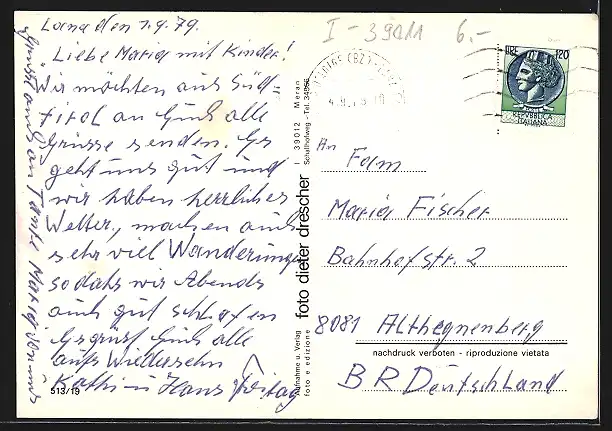 Lana den 1.9.79.
Liebe Maria mit Kinder!
Wir möchten aus Süd
tirol an Euch alle
Grüsse senden. Es
geht uns gut und
wir haben herrliches
Wetter, machen auch
sehr viel Wanderungen
so dahs wir Abends
auch gut schlafen
Es grüst Euch alle
aufs Wiedersehn
Kathi u Hans Freitag
Grüst auch an Tante Maria von uns
513/19
I-39011 6.-
LIRE 120
REPVBBLICA
ITALIANA
I 39012 Meran
Schulthofweg - Tel.
foto dieter drescher
Aufnahme u. Verlag
foto e edizione
An
Fam
Maria Fischer
Bahnhofstr. 2
8081 Althegnenberg
nachdruck verboten - riproduzione vietata
BR Deutschland